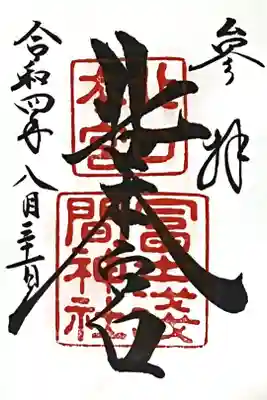 参拝
北口本宮
北口
本宮
冨士淺
間神社
令和四年八月